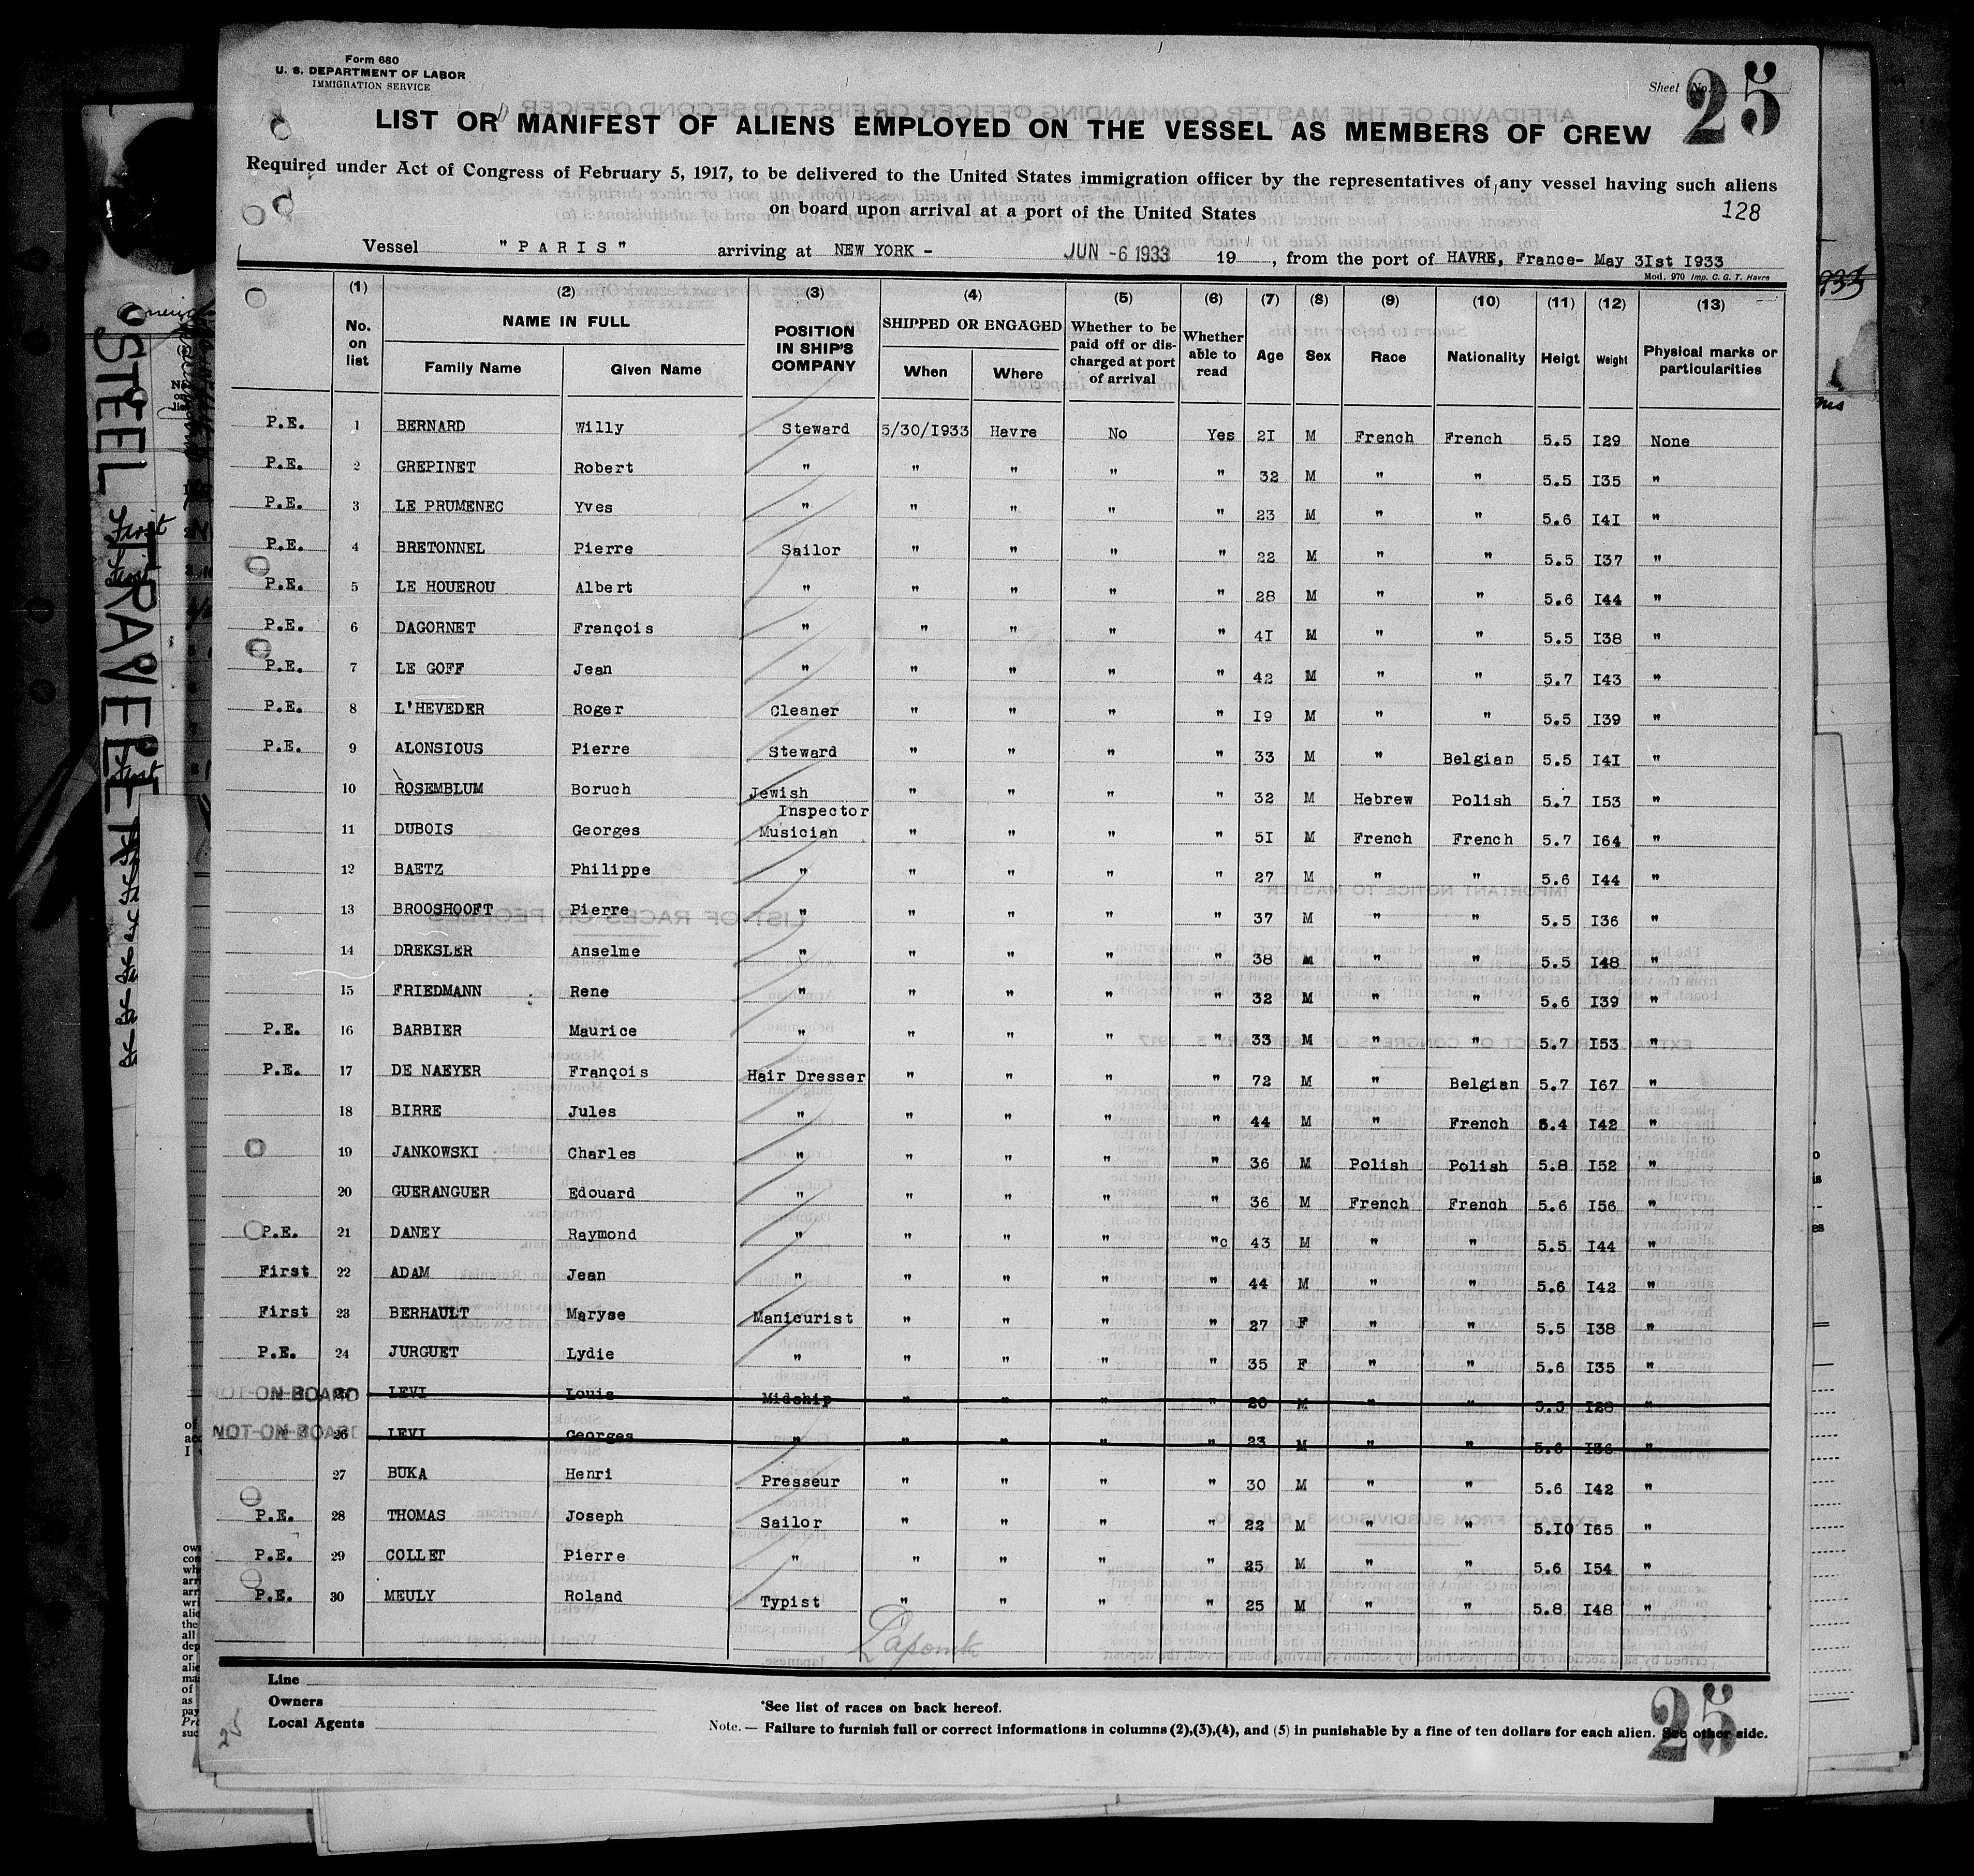 Form 680
U. S. DEPARTMENT OF LABOR
IMMIGRATION SERVICE
Sheet No. 25
LIST OR MANIFEST OF ALIENS EMPLOYED ON THE VESSEL AS MEMBERS OF CREW
Required under Act of Congress of February 5, 1917, to be delivered to the United States immigration officer by the representatives of any vessel having such aliens
on board upon arrival at a port of the United States
128
Vessel "PARIS" arriving at NEW YORK - JUN -6 1933 19 , from the port of HAVRE, France- May 3Ist I933
Mod. 970 Imp. C. G. T. Havre
(1) (2) (3) (4) (5) (6) (7) (8) (9) (10) (11) (12) (13)
No. on list NAME IN FULL Family Name Given Name POSITION IN SHIP'S COMPANY SHIPPED OR ENGAGED When Where Whether to be paid off or discharged at port of arrival Whether able to read Age Sex Race Nationality Heigt Weight Physical marks or particularities
P.E. 1 BERNARD Willy Steward 5/30/I933 Havre No Yes 2I M French French 5.5 I29 None
P.E. 2 GREPINET Robert " " " " " 32 M " " 5.5 I35 "
P.E. 3 LE PRUMENEC Yves " " " " " 23 M " " 5.6 I4I "
P.E. 4 BRETONNEL Pierre Sailor " " " " 22 M " " 5.5 I37 "
P.E. 5 LE HOUEROU Albert " " " " " 28 M " " 5.6 I44 "
P.E. 6 DAGORNET François " " " " " 4I M " " 5.5 I38 "
P.E. 7 LE GOFF Jean " " " " " 42 M " " 5.7 I43 "
P.E. 8 L'HEVEDER Roger Cleaner " " " " I9 M " " 5.5 I39 "
P.E. 9 ALONSIOUS Pierre Steward " " " " 33 M " Belgian 5.5 I4I "
10 ROSEMBLUM Boruch Jewish Inspector " " " " 32 M Hebrew Polish 5.7 I53 "
11 DUBOIS Georges Musician " " " " 5I M French French 5.7 I64 "
12 BAETZ Philippe " " " " " 27 M " " 5.6 I44 "
13 BROOSHOOFT Pierre " " " " " 37 M " " 5.5 I36 "
14 DREKSLER Anselme " " " " " 38 M " " 5.5 I48 "
15 FRIEDMANN Rene " " " " " 32 M " " 5.6 I39 "
P.E. 16 BARBIER Maurice " " " " " 33 M " " 5.7 I53 "
P.E. 17 DE NAEYER François Hair Dresser " " " " 72 M " Belgian 5.7 I67 "
18 BIRRE Jules " " " " " 44 M " French 5.4 I42 "
19 JANKOWSKI Charles " " " " " 36 M Polish Polish 5.8 I52 "
20 GUERANGUER Edouard " " " " " 36 M French French 5.6 I56 "
P.E. 21 DANEY Raymond " " " " "c 43 M " " 5.5 I44 "
First 22 ADAM Jean " " " " " 44 M " " 5.6 I42 "
First 23 BERHAULT Maryse Manicurist " " " " 27 F " " 5.5 I38 "
P.E. 24 JURGUET Lydie " " " " " 35 F " " 5.6 I35 "
NOT ON BOARD 25 LEVI Louis Midship " " " " 20 M " " 5.5 I28 "
NOT ON BOARD 26 LEVI Georges " " " " " 23 M " " 5.6 I36 "
27 BUKA Henri Presseur " " " " 30 M " " 5.6 I42 "
P.E. 28 THOMAS Joseph Sailor " " " " 22 M " " 5.I0 I65 "
P.E. 29 COLLET Pierre " " " " " 25 M " " 5.6 I54 "
P.E. 30 MEULY Roland Typist " " " " 25 M " " 5.8 I48 "
Line
Owners
Local Agents
*See list of races on back hereof.
Note. — Failure to furnish full or correct informations in columns (2),(3),(4), and (5) in punishable by a fine of ten dollars for each alien. See other side.
25
25
STEEL TRAVELER
First
First